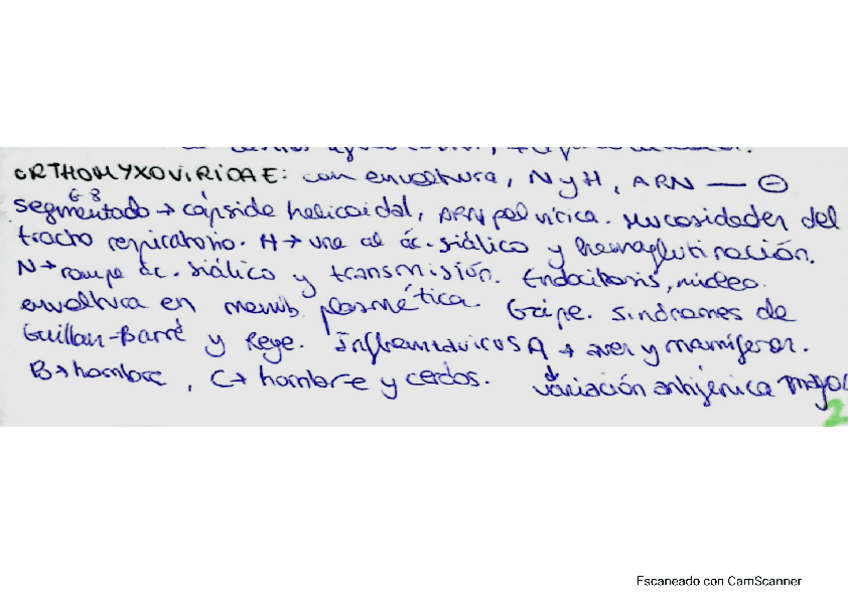 ORTHOMYXOVIRIDAE: con envoltura, N y H, ARN — ⊖
6-8
segmentado → cápside helicoidal, ARNpol vírica. Mucosidades del
tracto respiratorio. H → une al ác. siálico y hemaglutinación.
N → rompe ác. siálico y transmisión. Endocitosis, núcleo.
envoltura en memb. plasmática. Gripe. Síndromes de
Guillan-Barré y Reye. Influenzavirus A → aves y mamíferos.
B → hombre, C → hombre y cerdos. ↓ variación antigénica mayor
2
Escaneado con CamScanner